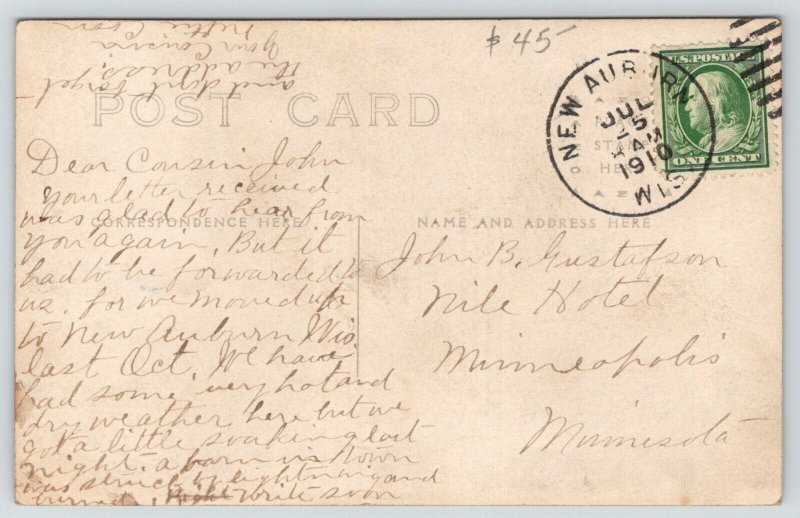 $45-
POST CARD
CORRESPONDENCE HERE
NAME AND ADDRESS HERE
U.S. POSTAGE
ONE CENT
NEW AUBURN
JUL
5
AM
1910
WIS
Dear Cousin John
your letter received
was glad to hear from
you again, But it
had to be forwarded to
us. for we moved up
to New Auburn Wis.
last Oct. We have
had some very hot and
dry weather here but we
got a little soaking last
night. a barn in town
was struck by lightning and
burned. write soon
and don't forget
the address!
Your Cousin
John B. Gustafson
Nile Hotel
Minneapolis
Minnesota